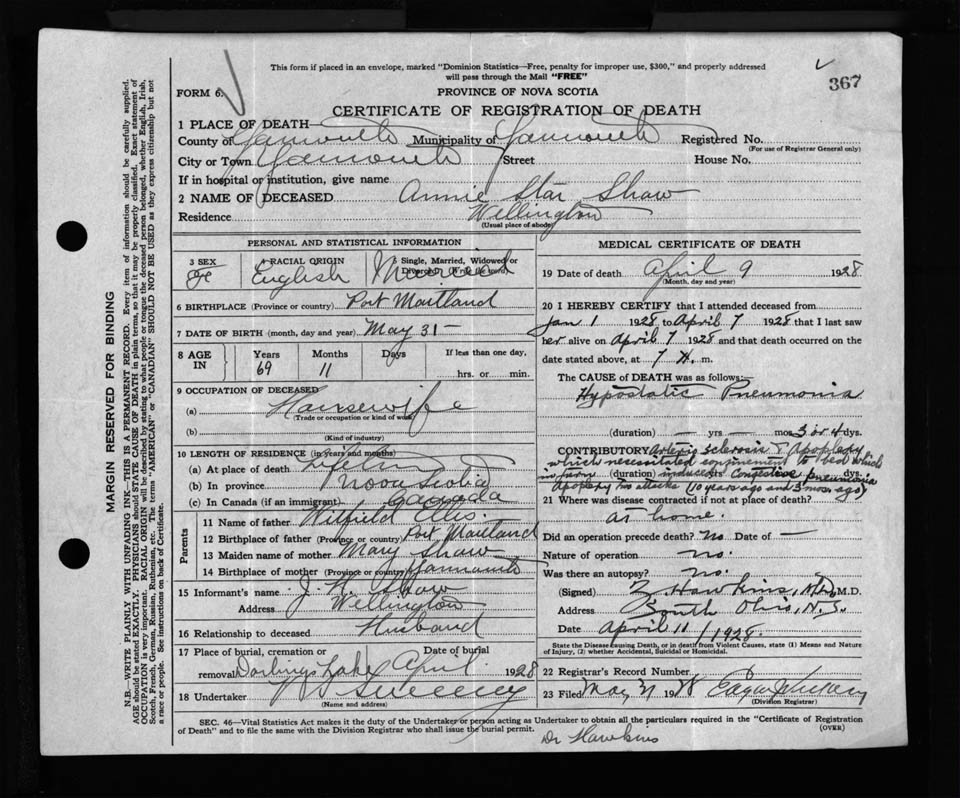 This form if placed in an envelope, marked "Dominion Statistics—Free, penalty for improper use, $300," and properly addressed
will pass through the Mail "FREE"
367
FORM 6.
PROVINCE OF NOVA SCOTIA
CERTIFICATE OF REGISTRATION OF DEATH
1 PLACE OF DEATH—
County of Yarmouth Municipality of Yarmouth Registered No.
(For use of Registrar General only)
City or Town Yarmouth Street House No.
If in hospital or institution, give name
2 NAME OF DECEASED Annie Star Shaw
Residence Wellington
(Usual place of abode)
PERSONAL AND STATISTICAL INFORMATION
3 SEX 4 RACIAL ORIGIN 5 Single, Married, Widowed or
Divorced (Write the word)
Fe English Married
6 BIRTHPLACE (Province or country) Port Maitland
7 DATE OF BIRTH (month, day and year) May 31—
8 AGE IN Years Months Days If less than one day,
69 11 hrs. or min.
9 OCCUPATION OF DECEASED
(a) Housewife
(Trade or occupation or kind of work)
(b)
(Kind of industry)
10 LENGTH OF RESIDENCE (in years and months)
(a) At place of death
(b) In province Nova Scotia
(c) In Canada (if an immigrant) Canada
Parents
11 Name of father Wilfield Ellis.
12 Birthplace of father (Province or country) Port Maitland
13 Maiden name of mother Mary Shaw
14 Birthplace of mother (Province or country) Yarmouth
15 Informant's name J. Shaw
Address Wellington
16 Relationship to deceased Husband
17 Place of burial, cremation or Date of burial
removal Darlings Lake April 1928
18 Undertaker Sweeney
(Name and address)
MEDICAL CERTIFICATE OF DEATH
19 Date of death April 9 1928
(Month, day and year)
20 I HEREBY CERTIFY that I attended deceased from
Jan 1 1928 to April 7 1928 that I last saw
her alive on April 7 1928 and that death occurred on the
date stated above, at 7 m.
The CAUSE of DEATH was as follows:—
Hypostatic Pneumonia
(duration) — yrs — mos. 3 or 4 dys.
CONTRIBUTORY Arterio sclerosis & Apoplexy
which necessitated confinement to bed which
in turn (duration) induced Congestive pneumonia dys.
Apoplexy two attacks (10 years ago and 3 mos ago)
21 Where was disease contracted if not at place of death?
at home.
Did an operation precede death? No. Date of —
Nature of operation no.
Was there an autopsy? no.
(Signed) Z Hawkins, M.D., M.D.
Address South Ohio, N.S.
Date April 11/1928.
State the Disease Causing Death, or in death from Violent Causes, state (1) Means and Nature
of Injury, (2) whether Accidental, Suicidal or Homicidal.
22 Registrar's Record Number
23 Filed May 31 1928
(Division Registrar)
SEC. 46—Vital Statistics Act makes it the duty of the Undertaker or person acting as Undertaker to obtain all the particulars required in the "Certificate of Registration
of Death" and to file the same with the Division Registrar who shall issue the burial permit.
(OVER)
Dr Hawkins
MARGIN RESERVED FOR BINDING
N.B.—WRITE PLAINLY WITH UNFADING INK—THIS IS A PERMANENT RECORD. Every item of information should be carefully supplied.
AGE should be stated EXACTLY. PHYSICIANS should STATE CAUSE OF DEATH in plain terms, so that it may be properly classified. Exact statement of
OCCUPATION is very important. RACIAL ORIGIN will be described by stating to what people or tongue the deceased person belonged, whether English, Irish,
Scotch, French, German, Russian, Ruthenian, etc. The terms "AMERICAN" or "CANADIAN" SHOULD NOT BE USED as they express citizenship but not
a race or people. See instructions on back of Certificate.